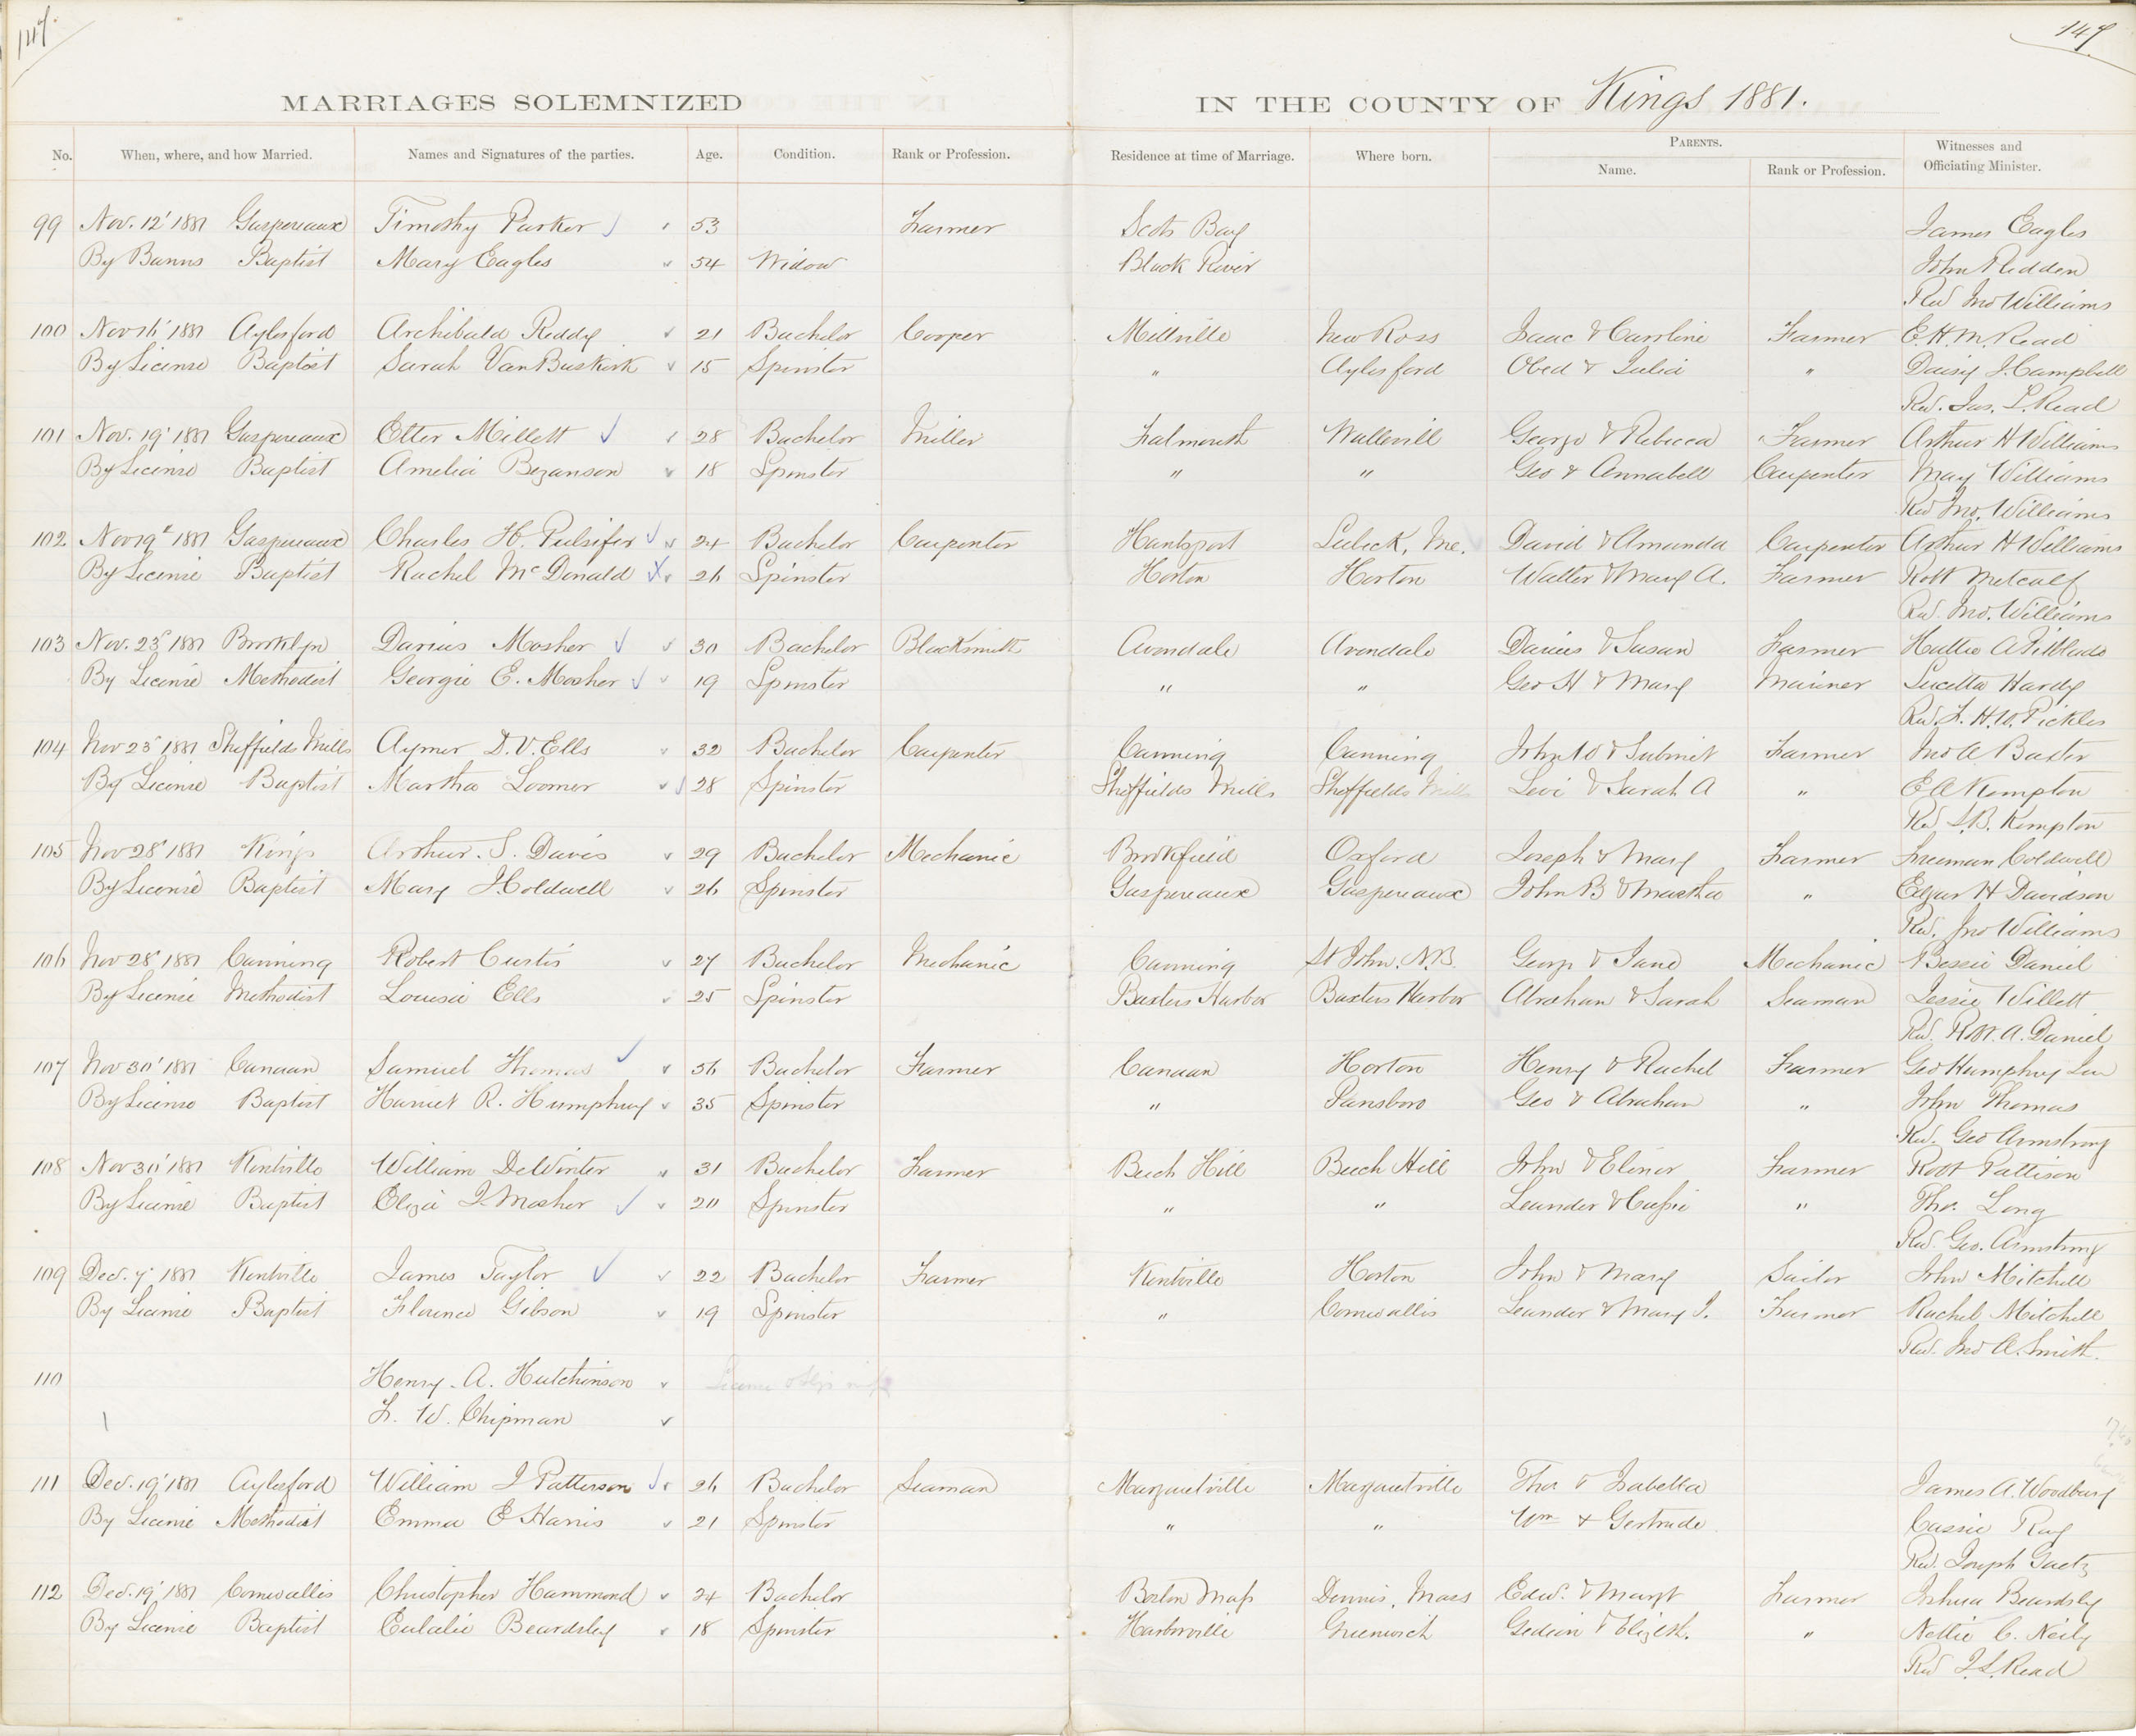 147
147
MARRIAGES SOLEMNIZED IN THE COUNTY OF Kings 1881.
No. When, where, and how Married. Names and Signatures of the parties. Age. Condition. Rank or Profession. Residence at time of Marriage. Where born. PARENTS. Name. Rank or Profession. Witnesses and Officiating Minister.
99 Nov. 12' 1881 Gaspereaux Timothy Parker 53 Farmer Scots Bay James Eagles
By Banns Baptist Mary Eagles 54 Widow Black River John Redden
Rev Jno Williams
100 Nov 16' 1881 Aylesford Archibald Reddy 21 Bachelor Cooper Millville New Ross Isaac & Caroline Farmer E. H. M. Read
By License Baptist Sarah VanBuskirk 15 Spinster " Aylesford Obed & Julia " Daisy J. Campbell
Rev. Jas. L. Read
101 Nov. 19' 1881 Gaspereaux Etter Millett 28 Bachelor Miller Falmouth Wallevill George & Rebecca Farmer Arthur H Williams
By License Baptist Amelia Bezanson 18 Spinster " " Geo & Annabell Carpenter May Williams
Rev Jno. Williams
102 Nov 19th 1881 Gaspereaux Charles H. Pulsifer 24 Bachelor Carpenter Hantsport Lubeck, Me. David & Amanda Carpenter Arthur H Williams
By License Baptist Rachel McDonald 26 Spinster Horton Horton Walter & Mary A. Farmer Robt Metcalf
Rev. Jno. Williams
103 Nov. 23' 1881 Brooklyn Darius Mosher 30 Bachelor Blacksmith Avondale Avondale Darius & Susan Farmer Hattie A Pitblado
By License Methodist Georgie E. Mosher 19 Spinster " " Geo H & Mary Mariner Lucetta Hardy
Rev. F. H. W. Pickles
104 Nov 23' 1881 Sheffields Mills Aymer D. V. Ells 32 Bachelor Carpenter Canning Canning John W & Submit Farmer Jno A Baxter
By License Baptist Martha Loomer 28 Spinster Sheffields Mills Sheffields Mills Levi & Sarah A " E A Kempton
Rev S. B. Kempton
105 Nov 28' 1881 Kings Arthur S. Davis 29 Bachelor Mechanic Brookfield Oxford Joseph & Mary Farmer Freeman Coldwell
By License Baptist Mary J. Coldwell 26 Spinster Gaspereaux Gaspereaux John B & Martha " Edgar H Davidson
Rev. Jno Williams
106 Nov 28' 1881 Canning Robert Curtis 27 Bachelor Mechanic Canning St John, N.B. George & Jane Mechanic Bessie Daniel
By License Methodist Louisa Ells 25 Spinster Baxters Harbor Baxters Harbor Abraham & Sarah Seaman Jessie Willett
Rev. Robt. A. Daniel
107 Nov 30' 1881 Canaan Samuel Thomas 56 Bachelor Farmer Canaan Horton Henry & Rachel Farmer Geo Humphrey Sen
By License Baptist Harriet R. Humphrey 35 Spinster " Parrsboro Geo & Abraham " John Thomas
Rev. Geo Armstrong
108 Nov 30' 1881 Kentville William DeWinter 31 Bachelor Farmer Beech Hill Beech Hill John & Elinor Farmer Robt Pattison
By License Baptist Eliza J. Mosher 20 Spinster " " Leander & Cassie " Tho. Long
Rev. Geo. Armstrong
109 Dec. 7' 1881 Kentville James Taylor 22 Bachelor Farmer Kentville Horton John & Mary Sailor John Mitchell
By License Baptist Florence Gibson 19 Spinster " Cornwallis Leander & Mary J. Farmer Rachel Mitchell
Rev. Jno A. Smith.
110 Henry A. Hutchinson
F. W. Chipman
111 Dec. 19' 1881 Aylesford William J Patterson 26 Bachelor Seaman Margaretville Margaretville Tho. & Isabella James A. Woodbury
By License Methodist Emma E Harris 21 Spinster " " Wm & Gertrude Cassie Ray
Rev. Joseph Gaetz
112 Dec. 19' 1881 Cornwallis Christopher Hammond 24 Bachelor Boston Mass Dennis, Mass Edw. & Margt Farmer Joshua Beardsley
By License Baptist Eulalie Beardsley 18 Spinster Harborville Greenwich Gedein & Elizth. " Nettie C. Neily
Rev J. L. Read